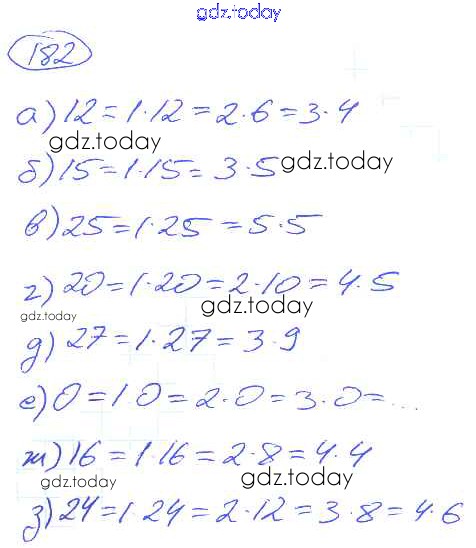 gdz.today
182
а) 12 = 1·12 = 2·6 = 3·4
gdz.today
б) 15 = 1·15 = 3·5 gdz.today
в) 25 = 1·25 = 5·5
г) 20 = 1·20 = 2·10 = 4·5
gdz.today gdz.today
д) 27 = 1·27 = 3·9
е) 0 = 1·0 = 2·0 = 3·0 = ...
ж) 16 = 1·16 = 2·8 = 4·4
gdz.today gdz.today
з) 24 = 1·24 = 2·12 = 3·8 = 4·6